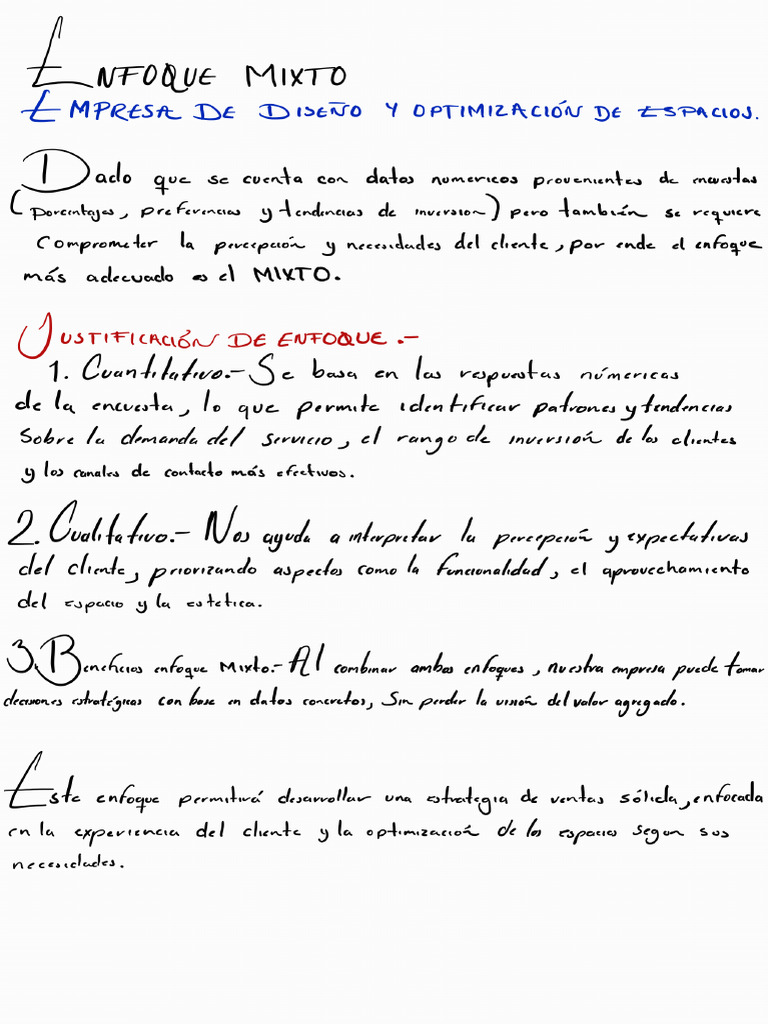 ENFOQUE MIXTO
EMPRESA DE DISEÑO Y OPTIMIZACIÓN DE ESPACIOS.
Dado que se cuenta con datos numericos provenientes de encuestas
(porcentajes, preferencias y tendencias de inversion) pero también se requiere
comprometer la percepción y necesidades del cliente, por ende el enfoque
más adecuado es el MIXTO.
JUSTIFICACIÓN DE ENFOQUE.-
1. Cuantitativo.- Se basa en las respuestas númericas
de la encuesta, lo que permite identificar patrones y tendencias
sobre la demanda del servicio, el rango de inversión de los clientes
y los canales de contacto más efectivos.
2. Cualitativo.- Nos ayuda a interpretar la percepción y expectativas
del cliente, priorizando aspectos como la funcionalidad, el aprovechamiento
del espacio y la estetica.
3. Beneficios enfoque Mixto.- Al combinar ambos enfoques, nuestra empresa puede tomar
decisiones estratégicas con base en datos concretos, sin perder la visión del valor agregado.
Este enfoque permitirá desarrollar una estrategia de ventas sólida, enfocada
en la experiencia del cliente y la optimización de los espacios segun sus
necesidades.